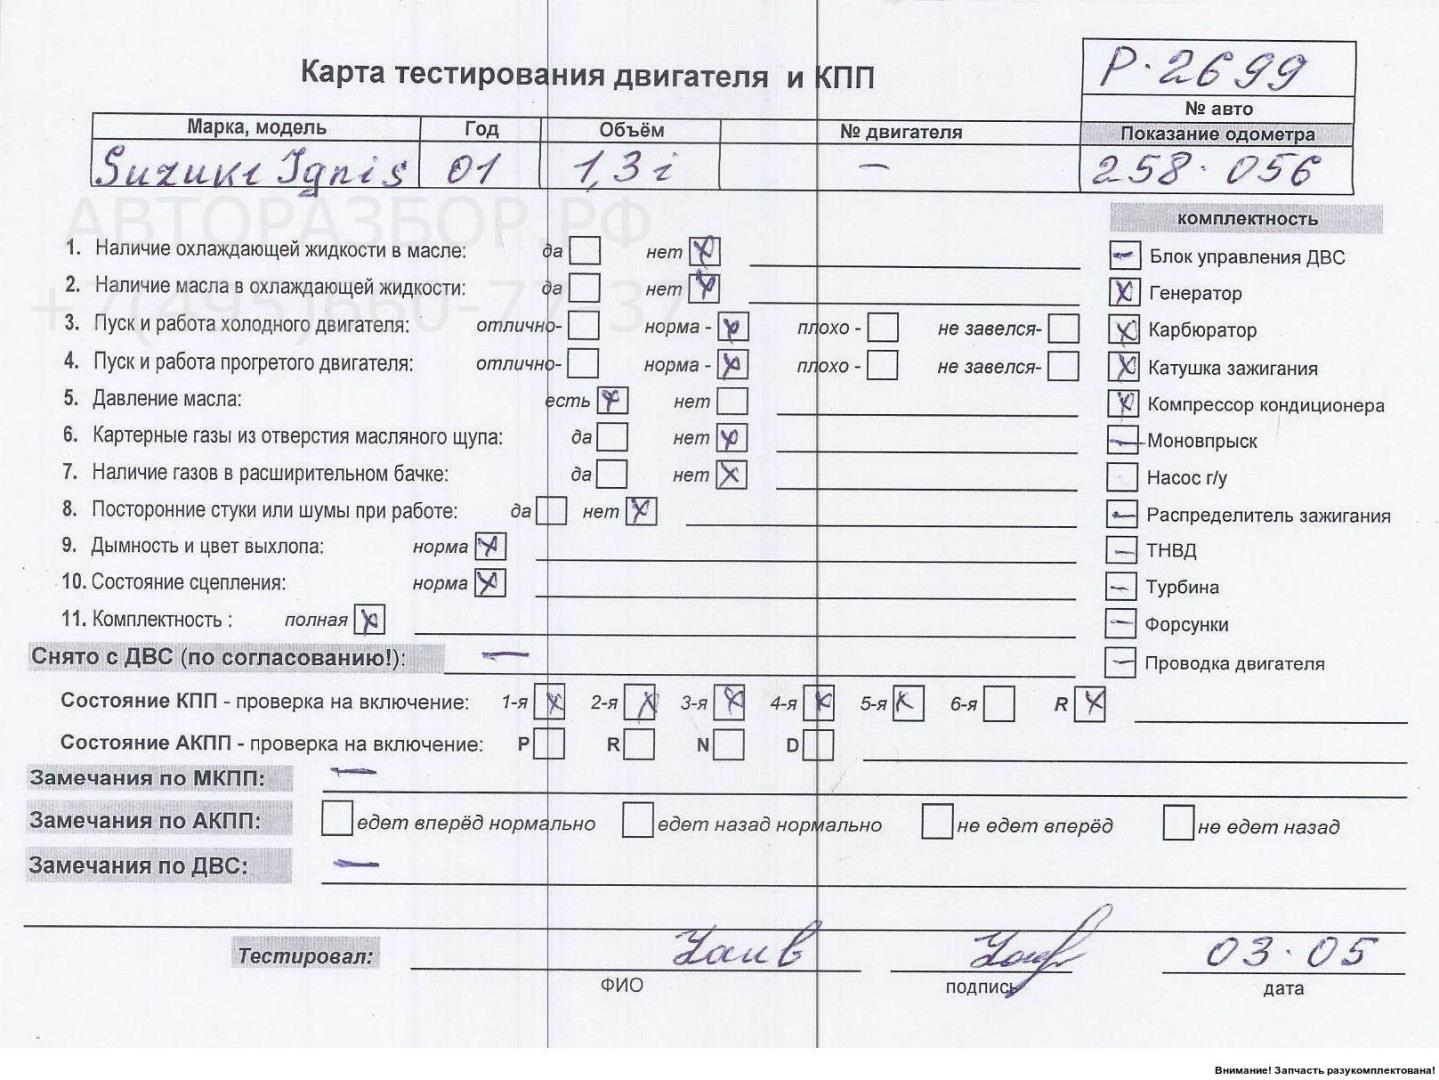 Карта тестирования двигателя и КПП
P·2699
№ авто
Марка, модель Год Объём № двигателя Показание одометра
Suzuki Ignis 01 1,3i — 258·056
АВТОРАЗБОР.РФ
комплектность
1. Наличие охлаждающей жидкости в масле: да нет X
— Блок управления ДВС
2. Наличие масла в охлаждающей жидкости: да нет X
X Генератор
3. Пуск и работа холодного двигателя: отлично- норма - X плохо - не завелся-
X Карбюратор
4. Пуск и работа прогретого двигателя: отлично- норма - X плохо - не завелся-
X Катушка зажигания
5. Давление масла: есть X нет
X Компрессор кондиционера
6. Картерные газы из отверстия масляного щупа: да нет X
— Моновпрыск
7. Наличие газов в расширительном бачке: да нет X
Насос г/у
8. Посторонние стуки или шумы при работе: да нет X
— Распределитель зажигания
9. Дымность и цвет выхлопа: норма X
— ТНВД
10. Состояние сцепления: норма X
— Турбина
11. Комплектность : полная X
— Форсунки
Снято с ДВС (по согласованию!): —
— Проводка двигателя
Состояние КПП - проверка на включение: 1-я X 2-я X 3-я X 4-я X 5-я X 6-я R X
Состояние АКПП - проверка на включение: P R N D
Замечания по МКПП: —
Замечания по АКПП: едет вперёд нормально едет назад нормально не едет вперёд не едет назад
Замечания по ДВС: —
Тестировал: 03·05
ФИО подпись дата
Внимание! Запчасть разукомплектована!